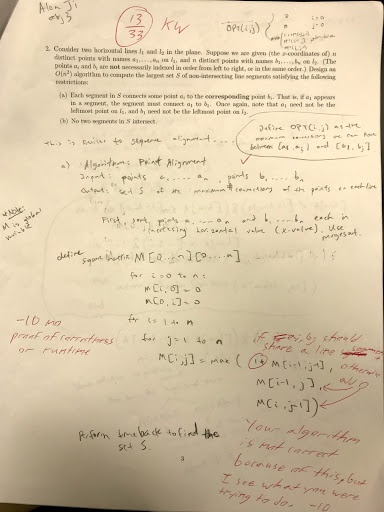 Alan Ji
13
33
KW
OPT(i,j)
2. Consider two horizontal lines l₁ and l₂ in the plane. Suppose we are given (the x-coordinates of) n
distinct points with names a₁, . . . , aₙ on l₁, and n distinct points with names b₁, . . . , bₙ on l₂. (The
points aᵢ and bᵢ are not necessarily indexed in order from left to right, or in the same order.) Design an
O(n²) algorithm to compute the largest set S of non-intersecting line segments satisfying the following
restrictions:
(a) Each segment in S connects some point aᵢ to the corresponding point bᵢ. That is, if a₁ appears
in a segment, the segment must connect a₁ to b₁. Once again, note that a₁ need not be the
leftmost point on l₁, and b₁ need not be the leftmost point on l₂.
(b) No two segments in S intersect.
Define OPT(i,j) as the
maximum connections we can have
between [a₁, aᵢ] and [b₁, bⱼ]
This is similar to sequence alignment...
a) Algorithm: Point Alignment
Input: points a₁ ... aₙ, points b₁ ... bₙ
Output: set S of the maximum # connections of the points on each line
First, sort points a₁ ... aₙ and b₁ ... bₙ each in
increasing horizontal value (x-value). Use
mergesort.
M is global
variable
define square matrix M[0...n][0...n]
for i=0 to n:
M[i,0]=0
M[0,i]=0
for i=1 to n
for j=1 to n
M[i,j] = max( 1+ M[i-1,j-1],
M[i-1,j],
M[i,j-1])
-10 no
proof of correctness
or runtime
if aᵢ, bⱼ should
share a line
otherwise
Perform traceback to find the
set S.
Your algorithm
is not correct
because of this, but
I see what you were
trying to do. -10
3